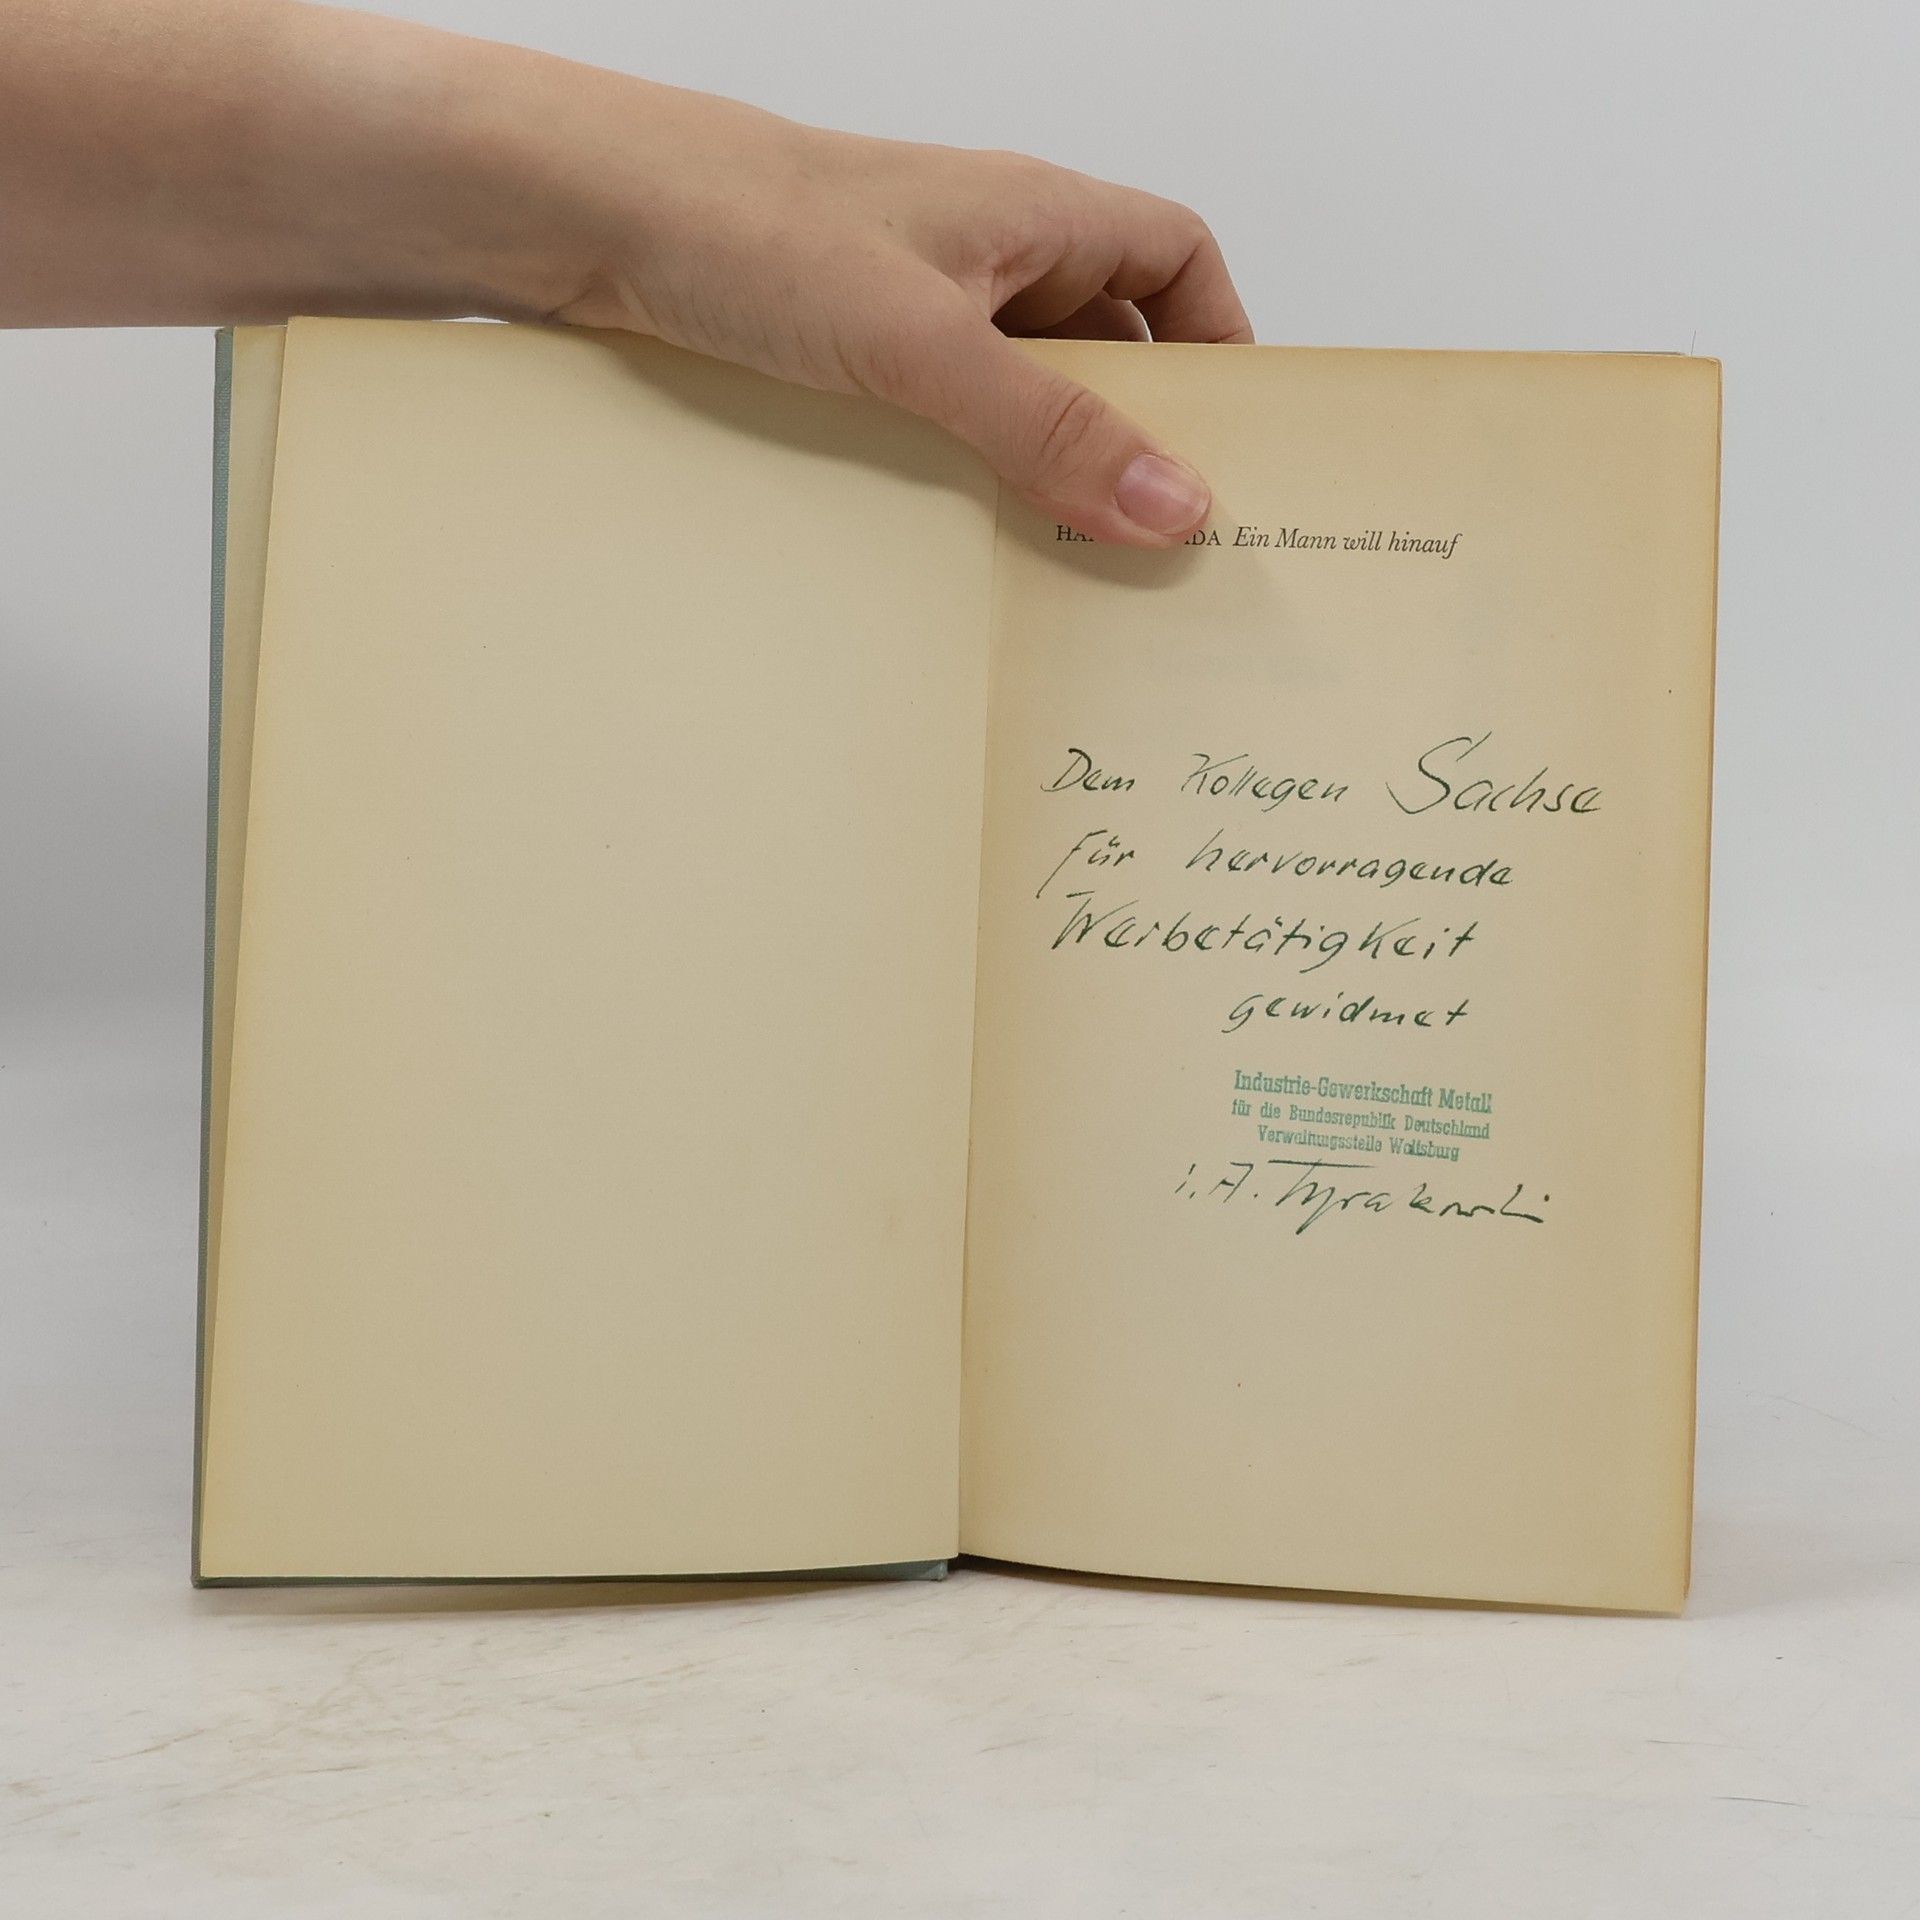 HA DA Ein Mann will hinauf
Dem Kollegen Sachse
für hervorragende
Werbetätigkeit
gewidmet
Industrie-Gewerkschaft Metall
für die Bundesrepublik Deutschland
Verwaltungsstelle Wolfsburg
i. A. Tyrakowski